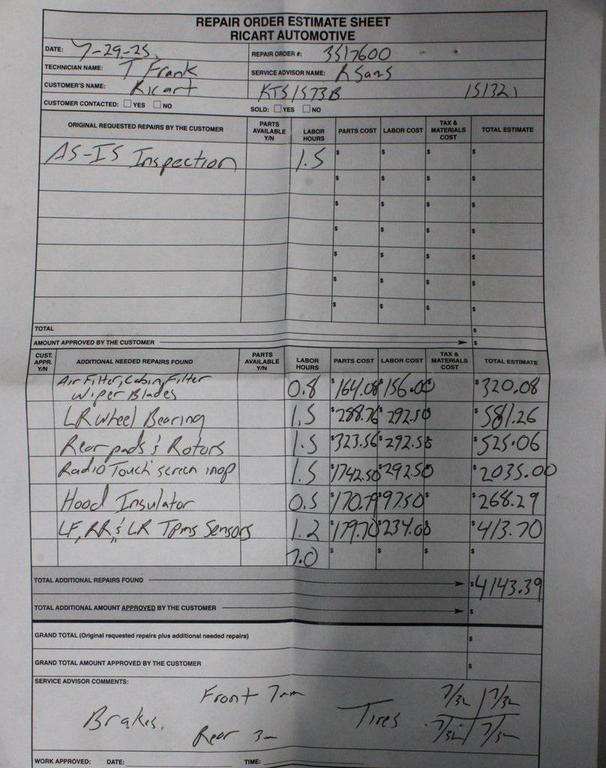 REPAIR ORDER ESTIMATE SHEET
RICART AUTOMOTIVE
DATE: 7-29-25 REPAIR ORDER #: 3517600
TECHNICIAN NAME: T Frank SERVICE ADVISOR NAME: R Sans
CUSTOMER'S NAME: Ricart KTS1573B 151321
CUSTOMER CONTACTED: ☐ YES ☐ NO SOLD: ☐ YES ☐ NO
ORIGINAL REQUESTED REPAIRS BY THE CUSTOMER PARTS AVAILABLE Y/N LABOR HOURS PARTS COST LABOR COST TAX & MATERIALS COST TOTAL ESTIMATE
AS-IS Inspection 1.5 $ $ $ $
$ $ $ $
$ $ $ $
$ $ $ $
$ $ $ $
$ $ $ $
$ $ $ $
TOTAL $
AMOUNT APPROVED BY THE CUSTOMER $
CUST. APPR. Y/N ADDITIONAL NEEDED REPAIRS FOUND PARTS AVAILABLE Y/N LABOR HOURS PARTS COST LABOR COST TAX & MATERIALS COST TOTAL ESTIMATE
Air Filter, Cabin Filter
Wiper Blades 0.8 $164.08 $156.00 $ $320.08
LR Wheel Bearing 1.5 $288.76 $292.50 $ $581.26
Rear pads & Rotors 1.5 $323.56 $292.50 $ $525.06
Radio Touch screen inop 1.5 $1742.50 $292.50 $ $2035.00
Hood Insulator 0.5 $170.79 $97.50 $ $268.29
LF, RR, & LR TPMS Sensors 1.2 $179.70 $234.00 $ $413.70
7.0 $ $ $ $
TOTAL ADDITIONAL REPAIRS FOUND $4143.39
TOTAL ADDITIONAL AMOUNT APPROVED BY THE CUSTOMER $
GRAND TOTAL (Original requested repairs plus additional needed repairs) $
GRAND TOTAL AMOUNT APPROVED BY THE CUSTOMER $
SERVICE ADVISOR COMMENTS:
Front 7mm 7/32 7/32
Brakes. Tires
Rear 3m 7/32 7/32
WORK APPROVED: DATE: TIME: